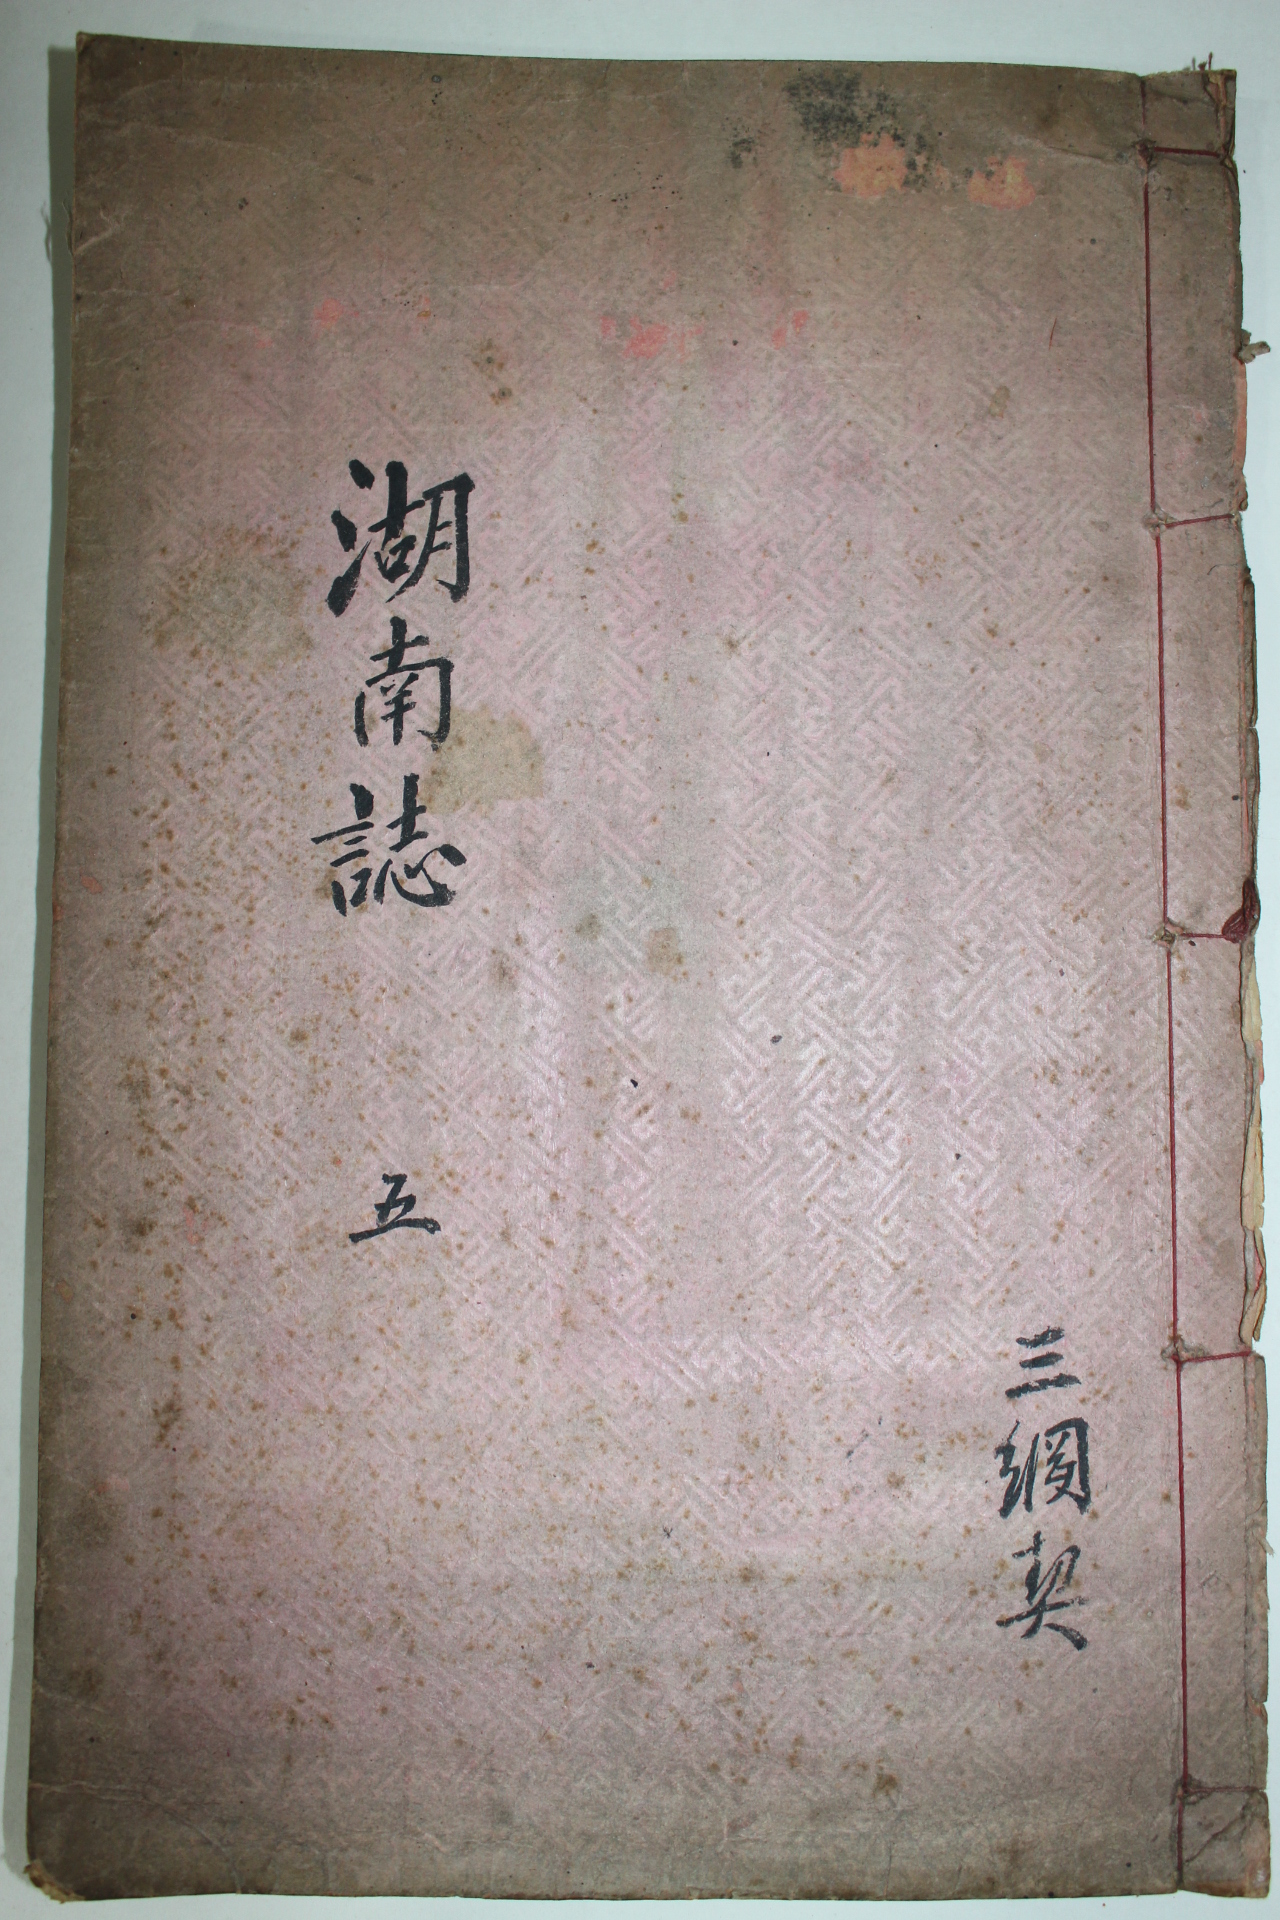 三綱契
湖南誌 五